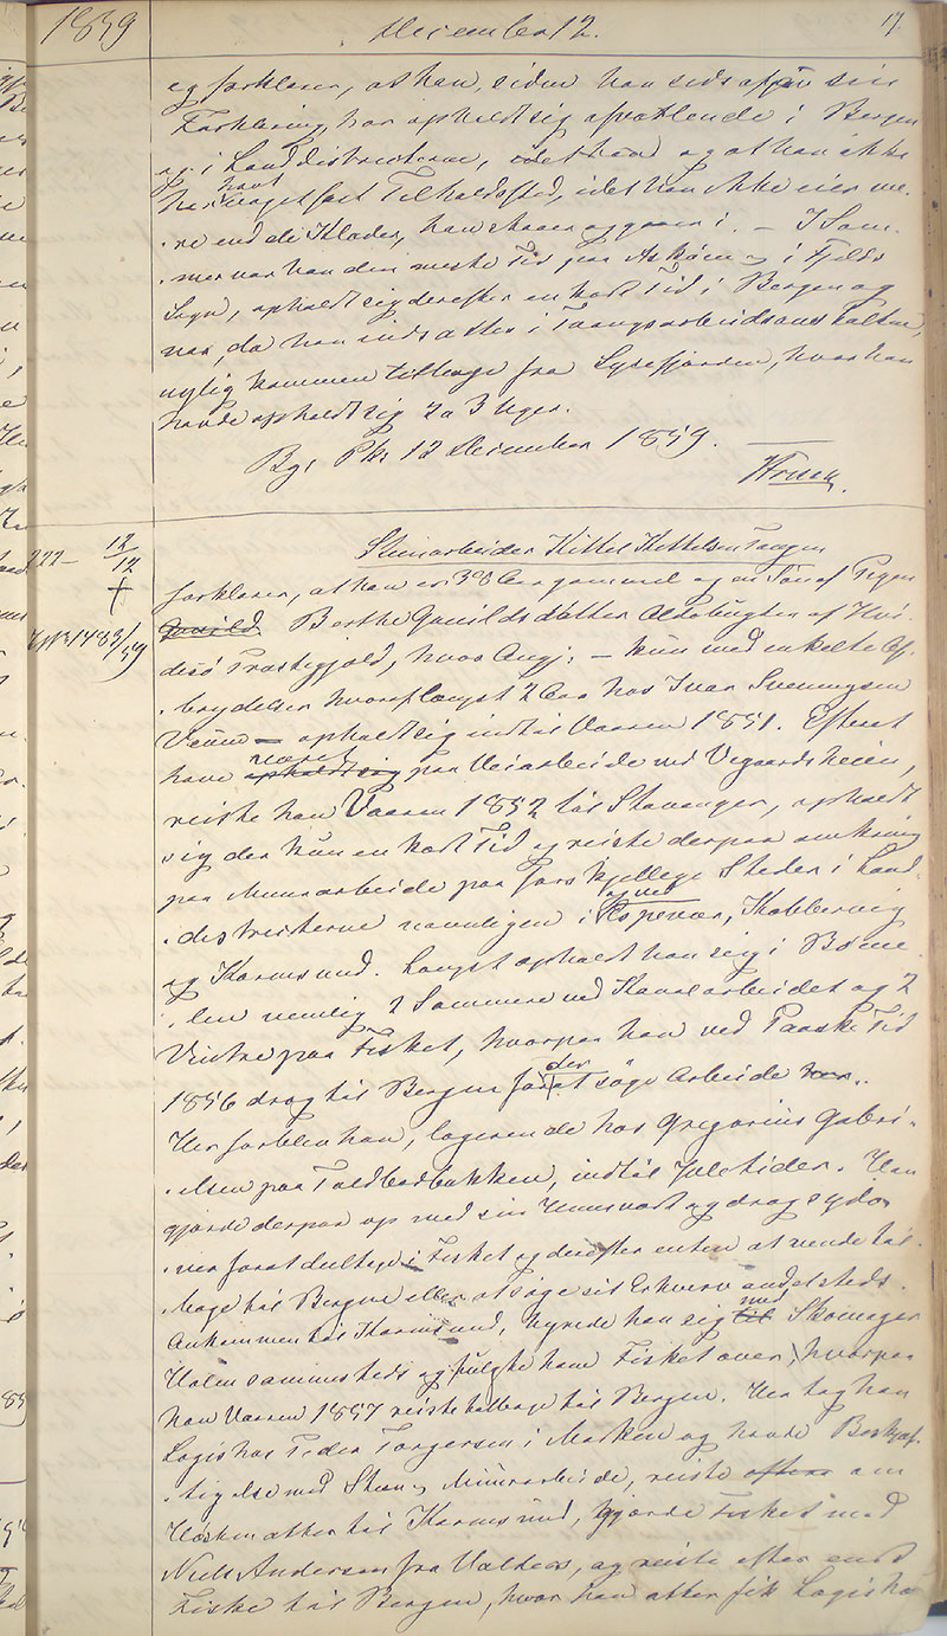 1859
December 12.
17.
og forklarer, at han, siden han sidst afgav sin
Forklaring, har opholdt sig afvexlende i Bergen
og i Landdistricterne, idet han og at han ikke
har havt noget fast Tilholdssted, idet han ikke eier me-
re end de Klæder, han staaer og gaaer i. – I Som-
mer var han den meste Tid paa Askøen og i Fjelds
Sogn, opholdt sig derefter en kort Tid i Bergen og
var, da han indsattes i Tvangsarbeidsanstalten,
nylig kommen tilbage fra Lysefjorden, hvor han
havde opholdt sig 2 a 3 Uger.
Bg: Pk: 12 December 1859.
222 – 12/12
Steinarbeider Kittel Kettelsen Tangen
forklarer, at han er 38 Aar gammel og en Søn af Pigen
Gunild Berthe Gunildsdatter Aldebugten af Hvi-
desø Præstegjæld, hvor Angj: – kun med enkelte Af-
brydelser hvoraf længst 2 Aar hos Ivar Sveningsen
Veum – opholdt sig indtil Vaaren 1851. Efter at
have opholdt sig været paa Veiarbeide ved Vegaardsheien,
reiste han Vaaren 1852 til Stavanger, opholdt
sig der kun en kort Tid og reiste derpaa omkring
paa Minearbeide paa forskjellige Steder i Land-
districterne navnligen i og ved Espevær, Kobbervig
og Karmsund. Længst opholdt han sig i Bømme-
len nemlig 2 Sommere ved Kanalarbeidet og 2
Vintre paa Fisket, hvorpaa han ved Paaske Tid
1856 drog til Bergen for der at søge Arbeide
Her forblev han, logerende hos Gregorius Gabri-
elsen paa Toldbodbakken, indtil Juletider. Han
gjorde derpaa op med sin Huusvært og drog sydo-
ver for at deeltage i Fisket og derefter enten at vende til-
bage til Bergen eller at søge sit Erhverv andetsteds.
Ankommen til Karmsund, hyrede han sig til med Skomager
Halm sammesteds og fulgte ham Fisket over, hvorpaa
han Vaaren 1857 reiste tilbage til Bergen. Her tog han
Logis hos Peder Torgersen i Marken og havde Beskjæf-
tigelse med Steen og Minearbeide, reiste om
Høsten atter til Karmsund, gjorde Fisket med
Niels Andersen fra Valders, og reiste efter endt
Fiske til Bergen, hvor han atter fik Logis hos